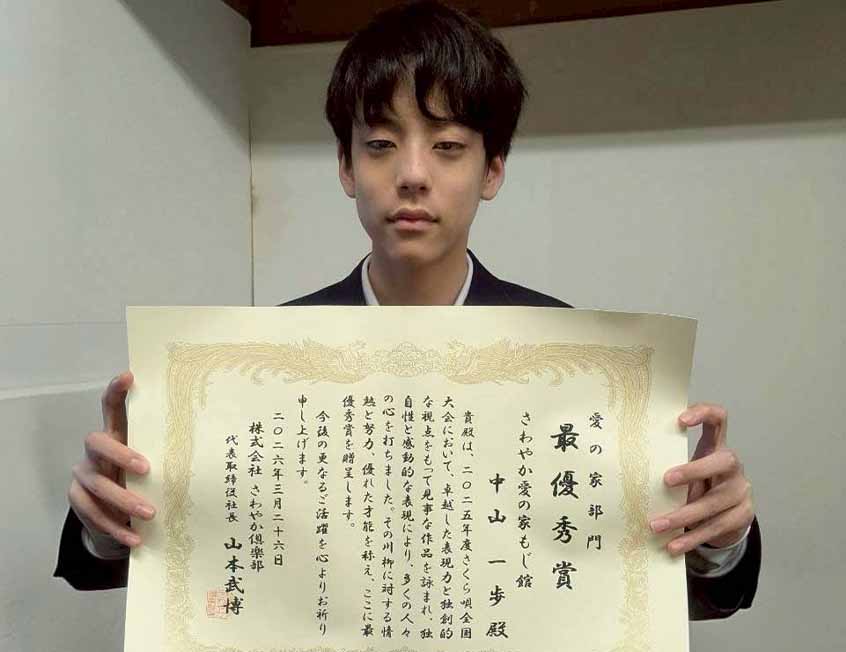 愛の家部門
最優秀賞
さわやか愛の家もじ館
中山一歩殿
貴殿は、二〇二五年度さくら唄全国
大会において、卓越した表現力と独創的
な視点をもって見事な作品を詠まれ、独
自性と感動的な表現により、多くの人々
の心を打ちました。その川柳に対する情
熱と努力、優れた才能を称え、ここに最
優秀賞を贈呈します。
今後の更なるご活躍を心よりお祈り
申し上げます。
二〇二六年三月二十六日
株式会社 さわやか倶楽部
代表取締役社長 山本武博